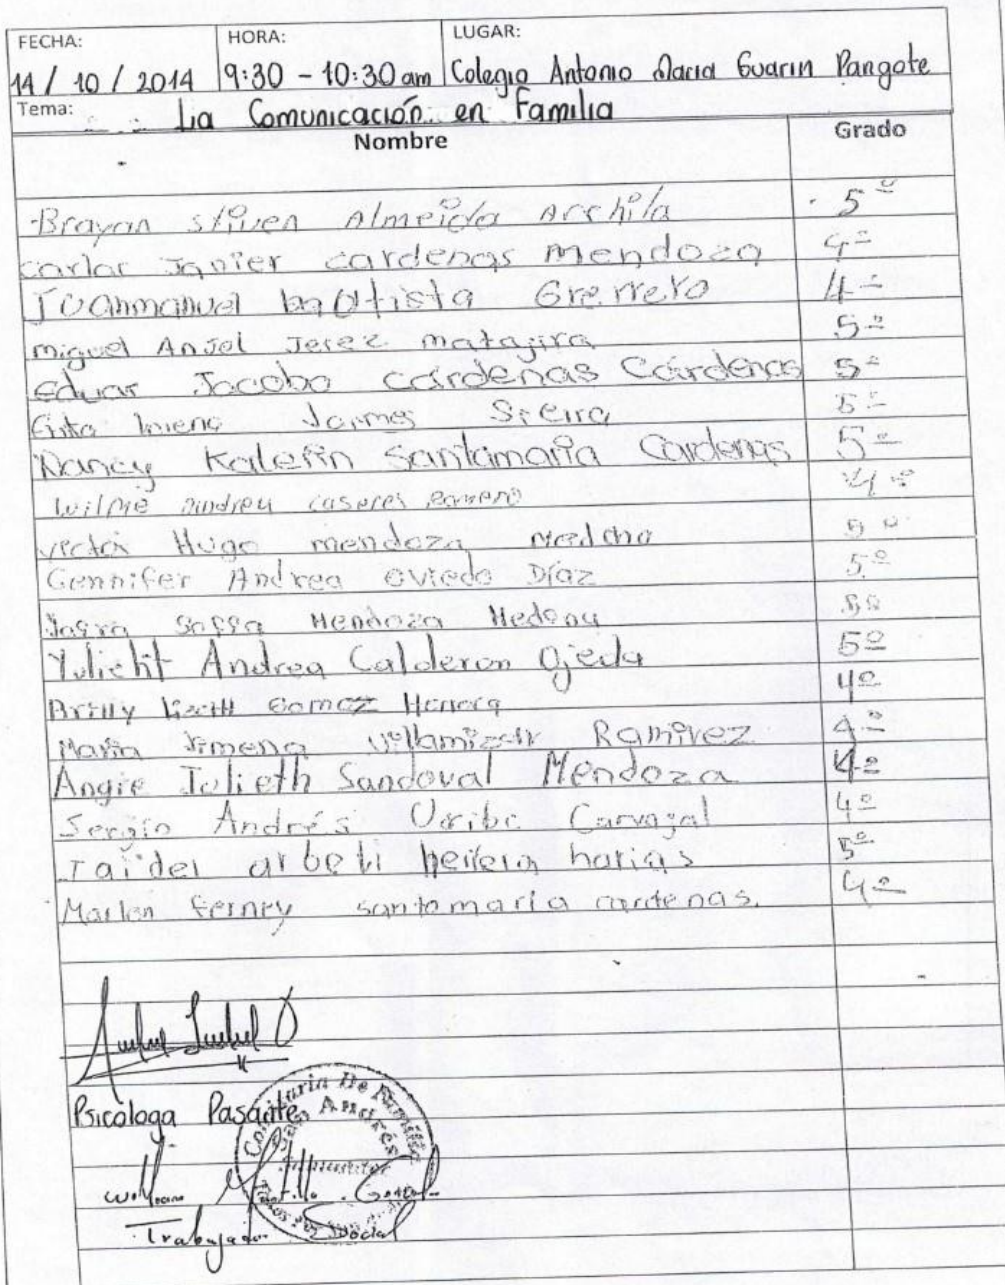 FECHA: HORA: LUGAR:
14 / 10 / 2014 9:30 - 10:30 am Colegio Antonio Maria Guarin Pangote
Tema: La Comunicación en Familia
Nombre Grado
Brayan stiven Almeida Archila 5º
carlos Javier cardenas Mendoza 4º
Juanmanuel batista Grerrero 4º
miguel Anjel Jerez matajira 5º
eduar Jacobo cardenas Cardenas 5º
Jaimes Sierra 5º
Nancy Katerin Santamaria Cardenas 5º
Wilme andrey caseres 4º
victor Hugo mendoza 5º
Gennifer Andrea oviedo Díaz 5º
Mendoza 5º
Yulieht Andrea Calderon Ojeda 5º
Gomez Herrera 4º
Maria Ximena villamizar Ramirez 4º
Angie Julieth Sandoval Mendoza 4º
Sergio Andrés Uribe Carvajal 4º
herrera harias 5º
Marlon ferney santamaria cardenas. 4º
Psicologa Pasante
Comisaria De Familia
San Andrés
Santander
William
Trabajador Social